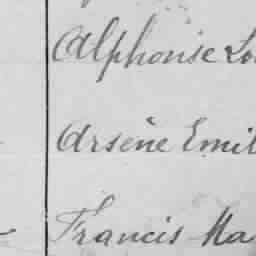 Alphonse Lo
Arsène Emil
Francis Ma